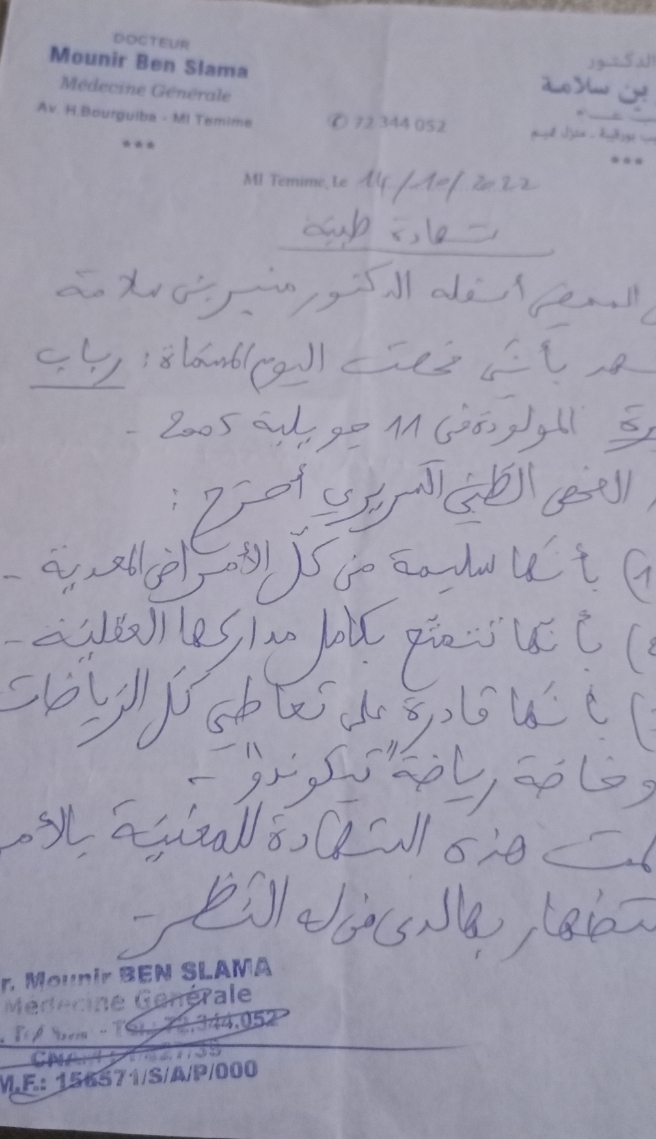 DOCTEUR
Mounir Ben Slama
Médecine Générale
Av. H.Bourguiba - Ml Temime
***
✆ 72 344 052
الدكتور
بن سلامة
ب بورقيبة - منزل تميم
***
Ml Temime, Le 14/10/2022
شهادة طبية
الممضي أسفله الدكتور منير بن سلامة
شهد بأنني فحصت اليوم المسماة : رباب
المولودة في 11 جويلية 2005 -
الفحص الطبي السريري أصرح :
1) بأنها سليمة من كلّ الأمراض المعدية -
بأنها تتمتّع بكامل مداركها العقلية -
بأنها قادرة على تعاطي كلّ الرياضات
وخاصة رياضة "تيكوندو" -
لمت هذه الشهادة للمعنيّة بالأمر
ستظهار بها لدى من له النظر -
r. Mounir BEN SLAMA
Médecine Générale
Tél.: 72.344.052
M.F.: 156571/S/A/P/000